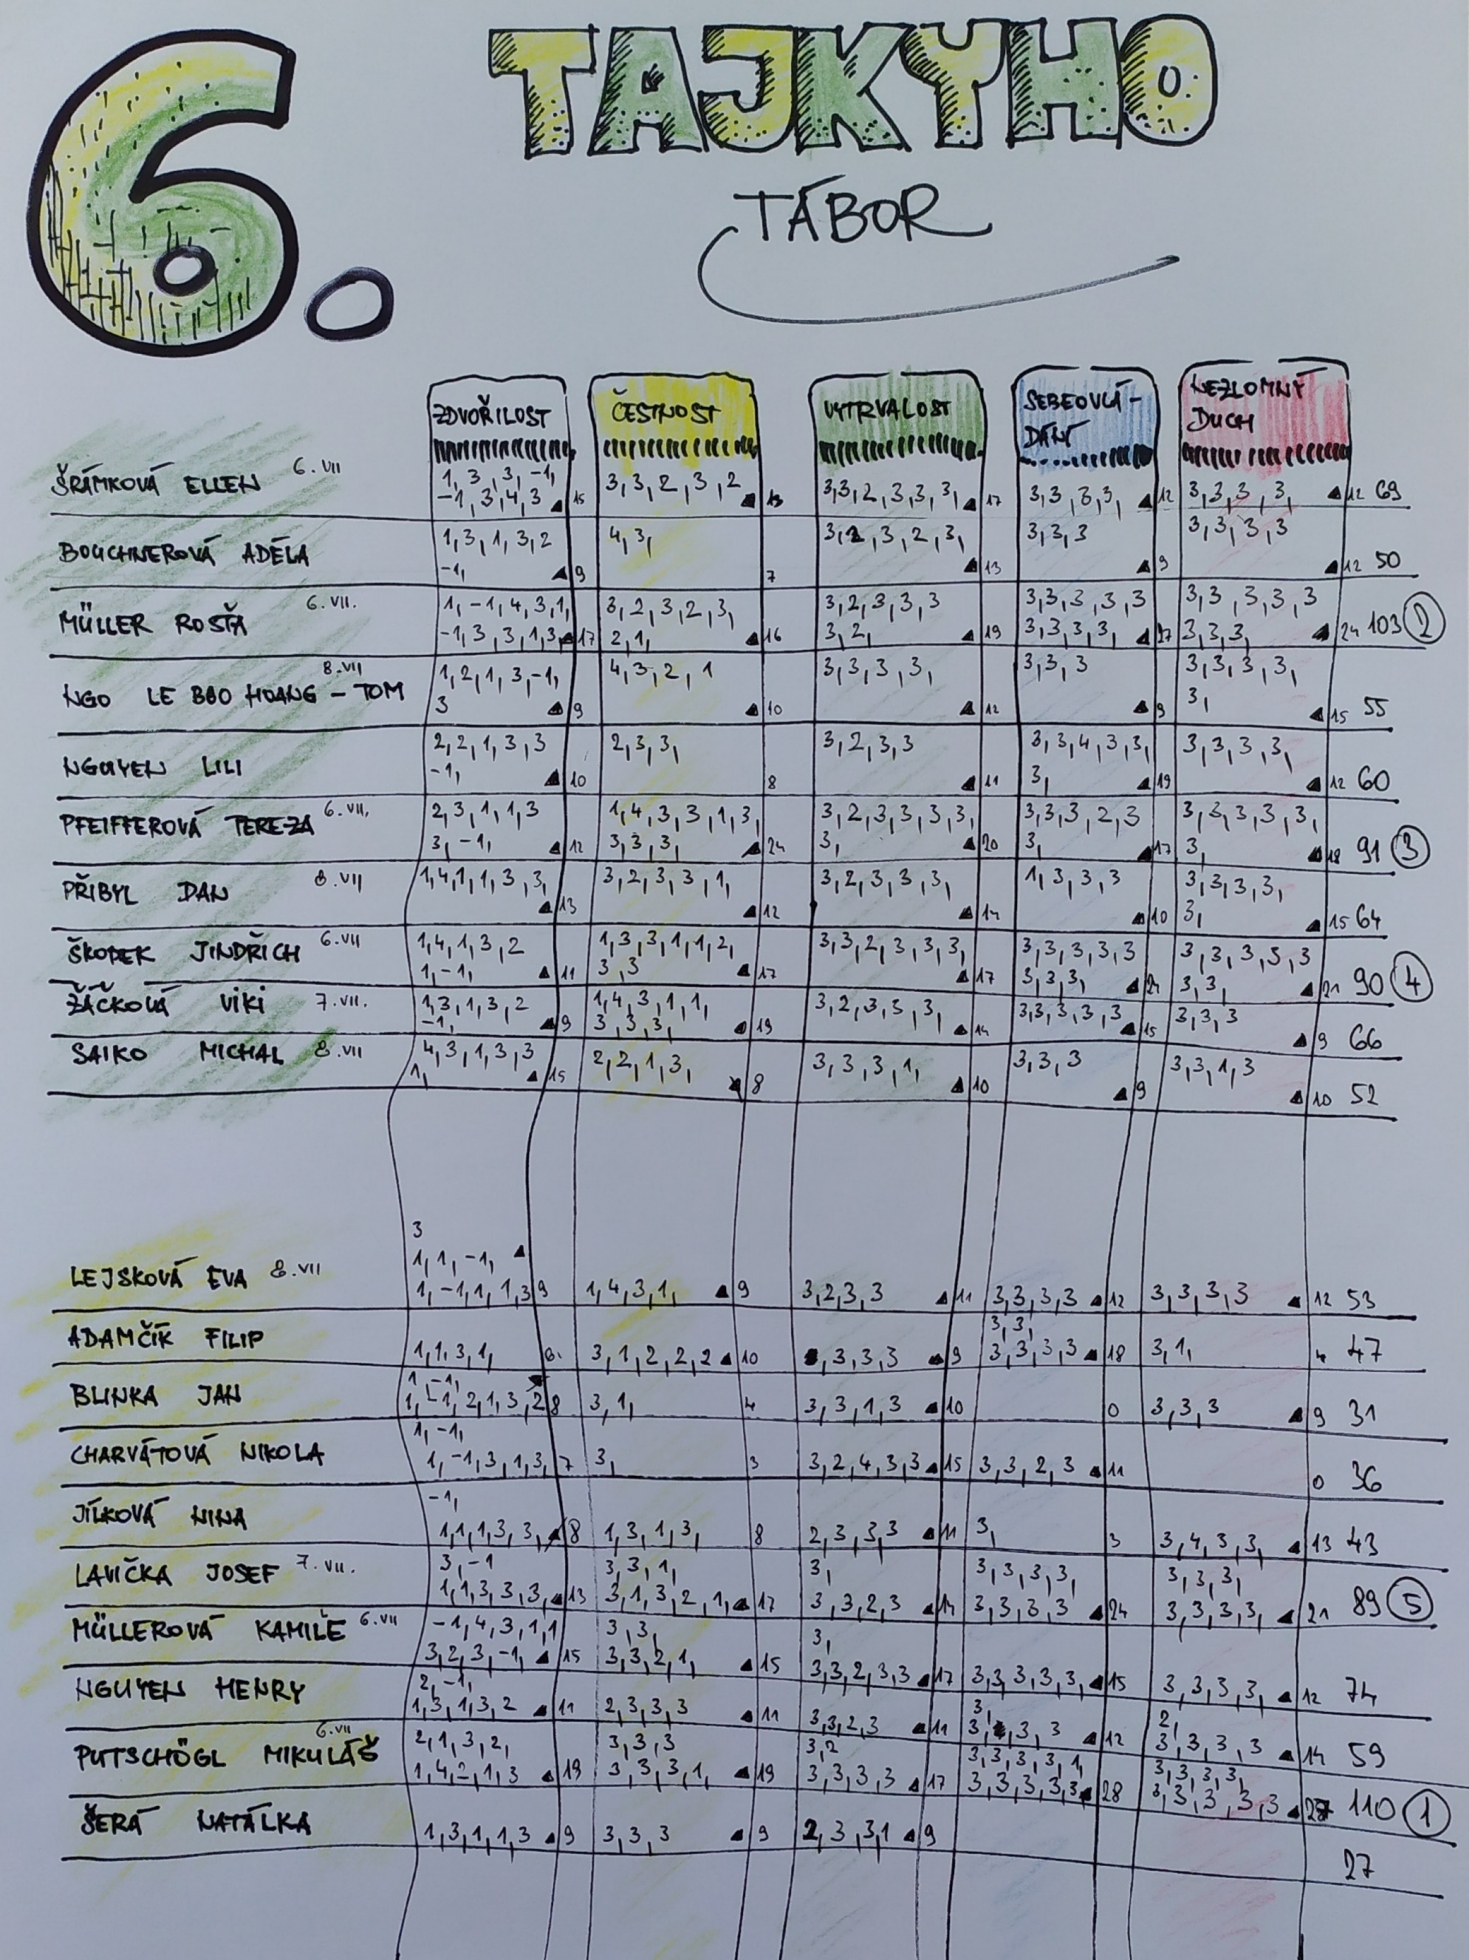 6. TAJKYHO
TÁBOR
ZDVOŘILOST ČESTNOST VYTRVALOST SEBEOVLÁ-DÁNÍ NEZLOMNÝ DUCH
ŠRÁMKOVÁ ELLEN 6.VII 1,3,3,-1, 3,3,2,3,2 13 3,3,2,3,3,3, 17 3,3,3,3, 12 3,3,3,3, 12 69
-1,3,4,3 15
BOUCHNEROVÁ ADÉLA 1,3,1,3,2 4,3, 7 3,2,3,2,3, 13 3,3,3 9 3,3,3,3 12 50
-1, 9
MÜLLER ROSŤA 6.VII. 1,-1,4,3,1, 3,2,3,2,3, 3,2,3,3,3 3,3,3,3,3 3,3,3,3,3
-1,3,3,1,3, 17 2,1, 16 3,2, 19 3,3,3,3, 27 3,3,3, 24 103 2
NGO LE BAO HOANG - TOM 8.VII 1,2,1,3,-1, 4,3,2,1 10 3,3,3,3, 12 3,3,3 9 3,3,3,3,
3 9 3, 15 55
NGUYEN LILI 2,2,1,3,3 2,3,3, 8 3,2,3,3 11 3,3,4,3,3, 3,3,3,3, 12 60
-1, 10 3, 19
PFEIFFEROVÁ TEREZA 6.VII. 2,3,1,1,3 1,4,3,3,1,3, 3,2,3,3,3,3, 3,3,3,2,3 3,3,3,3,3,
3,-1, 12 3,3,3, 24 3, 20 3, 17 3, 18 91 3
PŘIBYL DAN 8.VII 1,4,1,1,3,3, 13 3,2,3,3,1, 12 3,2,3,3,3, 14 1,3,3,3 10 3,3,3,3,
3, 15 64
ŠKOPEK JINDŘICH 6.VII 1,4,1,3,2 1,3,3,1,1,2, 3,3,2,3,3,3, 17 3,3,3,3,3 3,3,3,3,3
1,-1, 11 3,3 17 3,3,3, 24 3,3, 21 90 4
ŽÁČKOVÁ VIKI 7.VII. 1,3,1,3,2 1,4,3,1,1, 3,2,3,3,3, 14 3,3,3,3,3 15 3,3,3 9 66
-1, 9 3,3,3, 19
SAIKO MICHAL 8.VII 4,3,1,3,3 2,2,1,3, 8 3,3,3,1, 10 3,3,3 9 3,3,1,3 10 52
1, 15
3
1,1,-1,
LEJSKOVÁ EVA 8.VII 1,-1,1,1,3 9 1,4,3,1, 9 3,2,3,3 11 3,3,3,3 12 3,3,3,3 12 53
3,3,
ADAMČÍK FILIP 1,1,3,1, 6. 3,1,2,2,2 10 ,3,3,3 9 3,3,3,3 18 3,1, 4 47
1,-1,
BLINKA JAN 1,-1,2,1,3,2 8 3,1, 4 3,3,1,3 10 0 3,3,3 9 31
1,-1,
CHARVÁTOVÁ NIKOLA 1,-1,3,1,3, 7 3, 3 3,2,4,3,3 15 3,3,2,3 11 0 36
-1,
JÍLKOVÁ NINA 1,1,1,3,3, 8 1,3,1,3, 8 2,3,3,3 11 3, 3 3,4,3,3, 13 43
LAVIČKA JOSEF 7.VII. 3,-1 3,3,1, 3, 3,3,3,3, 3,3,3,
1,1,3,3,3, 13 3,1,3,2,1, 17 3,3,2,3 14 3,3,3,3 24 3,3,3,3, 21 89 5
MÜLLEROVÁ KAMILE 6.VII -1,4,3,1,1 3,3, 3,
3,2,3,-1, 15 3,3,2,1, 15 3,3,2,3,3 17 3,3,3,3,3, 15 3,3,3,3, 12 74
NGUYEN HENRY 2,-1, 3, 2,
1,3,1,3,2 11 2,3,3,3 11 3,3,2,3 11 3, ,3,3 12 3,3,3,3 14 59
PUTSCHÖGL MIKULÁŠ 6.VII 2,1,3,2, 3,3,3 3,2 3,3,3,3,1, 3,3,3,3,
1,4,2,1,3 19 3,3,3,1, 19 3,3,3,3 17 3,3,3,3,3, 28 3,3,3,3,3 27 110 1
ŠERÁ NATÁLKA 1,3,1,1,3 9 3,3,3 9 2,3,3,1 9 27